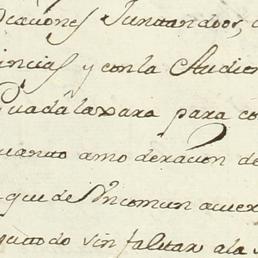 caciones Juntandoos, c
incias y con la Audien
Guadalaxara para co
quanto amoderacion de
que de Vn comun acuer
que todo sin faltar ala